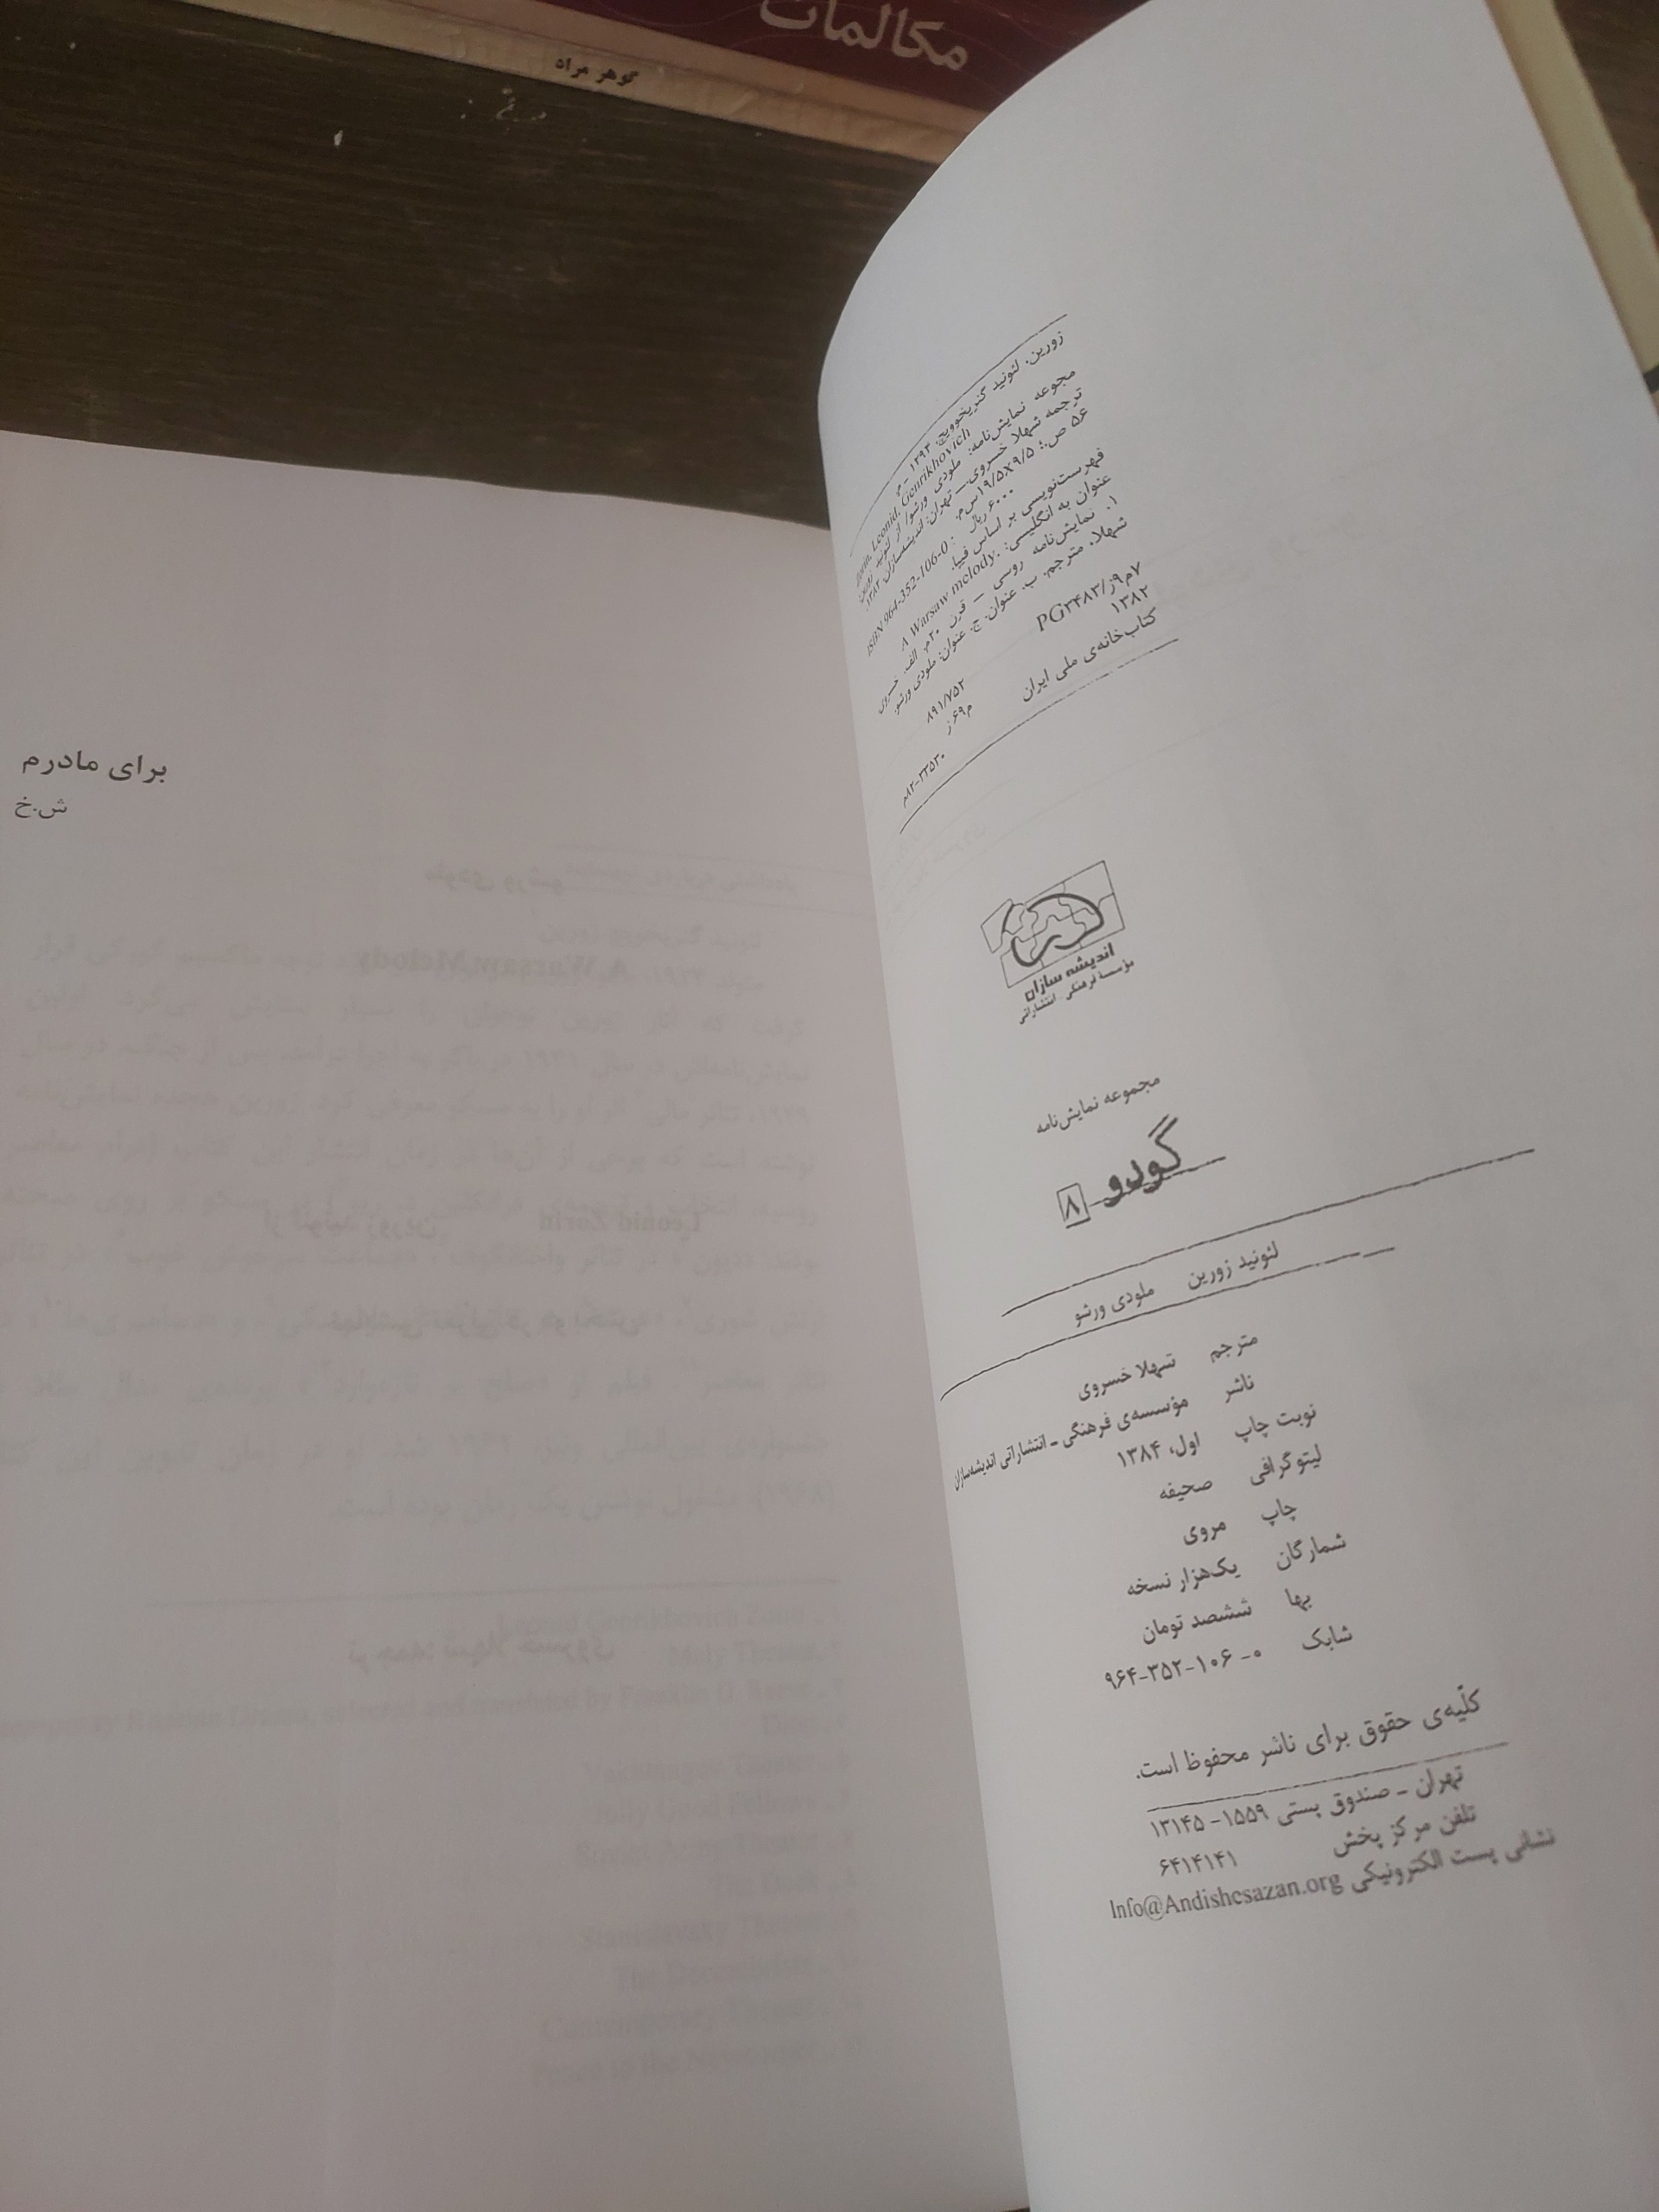 مکالمات
گوهر مراد
زورین، لئونید گنریخوویچ، ۱۲۹۳ - م
Zorin, Leonid, Genrikhovich
مجوعه نمایش‌نامه: ملودی ورشو/ از لئونید زورین؛
ترجمه شهلا خسروی.ــ تهران: اندیشه‌سازان، ۱۳۸۲.
۵۶ ص.؛ ۱۹/۵X۹/۵س‌م.
ISBN 964-352-106-0 : ۶۰۰۰ ریال
فهرست‌نویسی بر اساس فیپا.
عنوان به انگلیسی: A Warsaw melody.
۱. نمایش‌نامه روسی ــ قرن ۲۰م. الف. خسروی
شهلا، مترجم. ب. عنوان. ج. عنوان: ملودی ورشو.
۷م۹ز/PG۳۴۸۳ ۸۹۱/۷۵۲
۱۳۸۲ م۶۹ز
کتاب‌خانه‌ی ملی ایران ۸۲-۲۳۵۳۰م
اندیشه سازان
مؤسسهٔ فرهنگی انتشاراتی
مجموعه نمایش‌نامه
گودو ۸
لئونید زورین ملودی ورشو
مترجم شهلا خسروی
ناشر مؤسسه‌ی فرهنگی - انتشاراتی اندیشه‌سازان
نوبت چاپ اول، ۱۳۸۴
لیتوگرافی صحیفه
چاپ مروی
شمارگان یک‌هزار نسخه
بها ششصد تومان
شابک ۰- ۱۰۶-۳۵۲-۹۶۴
کلّیه‌ی حقوق برای ناشر محفوظ است.
تهران - صندوق پستی ۱۵۵۹- ۱۳۱۴۵
تلفن مرکز پخش ۶۴۱۴۱۴۱
نشانی پست الکترونیکی Info@Andishesazan.org
برای مادرم
ش.خ